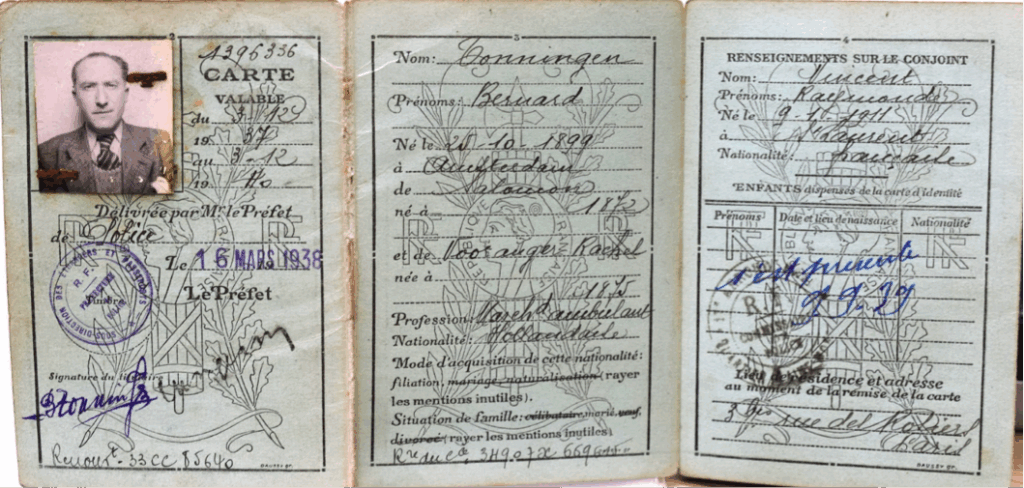 2
1396336
CARTE
VALABLE
du 3-12
19 37
au 3-12
19 40
Délivrée par Mr. le Préfet
de Police
Le 16 MARS 1938
Le Préfet
Timbre
R. F.
SOUS-DIRECTION DES ÉTRANGERS ET PASSEPORTS
Signature du
3
Nom: Tonningen
Prénoms: Bernard
Né le 28-10-1899
à Amsterdam
de Salomon
né à 1872
et de Voorzanger Rachel
née à 1875
Profession: March d ambulant
Nationalité: Hollandaise
Mode d'acquisition de cette nationalité:
filiation, mariage, naturalisation (rayer
les mentions inutiles).
Situation de famille: célibataire, marié, veuf,
divorcé (rayer les mentions inutiles)
4
RENSEIGNEMENTS SUR LE CONJOINT
Nom: Vincent
Prénoms: Raymonde
Né le 9-10-1911
à
Nationalité: française
ENFANTS dispensés de la carte d'identité
Prénoms Date et lieu de naissance Nationalité
s'est présenté
9.9.39
Lieu de résidence et adresse
au moment de la remise de la carte
3 bis rue des Rosiers
Paris